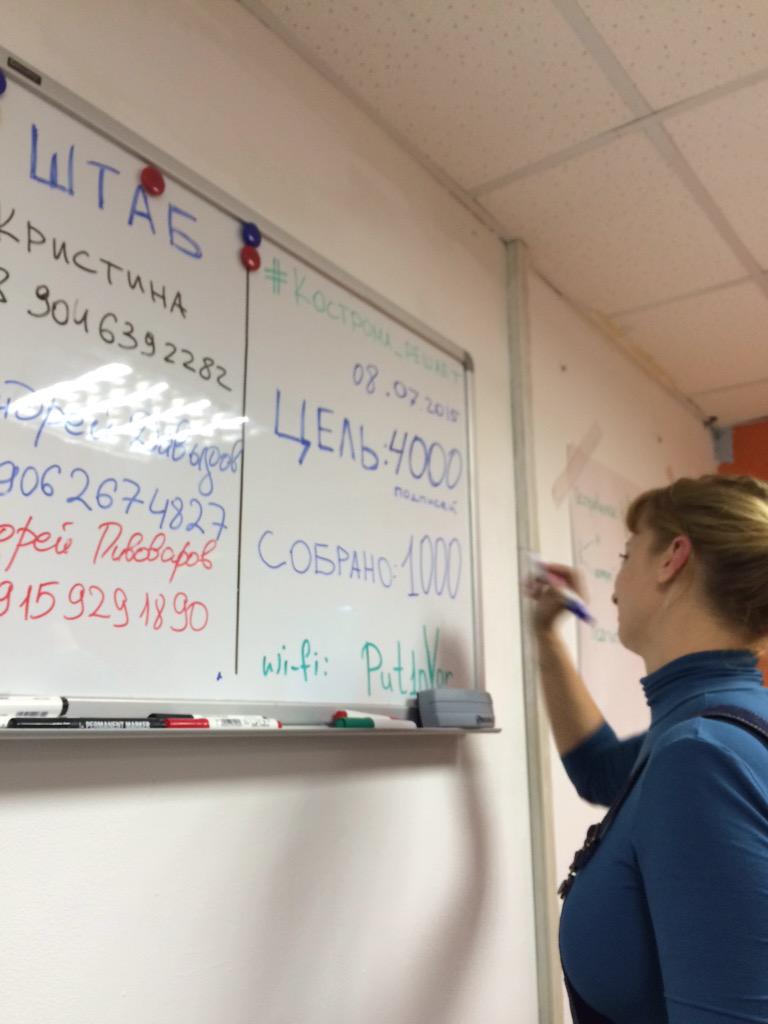 ШТАБ
КРИСТИНА
8 9046392282
ндрей Давыдов
9062674827
дрей Пивоваров
9159291890
#КОСТРОМА_РЕШАЕТ
08.07.2015
ЦЕЛЬ: 4000
подписей
СОБРАНО: 1000
wi-fi: Put1nVor
PERMANENT MARKER